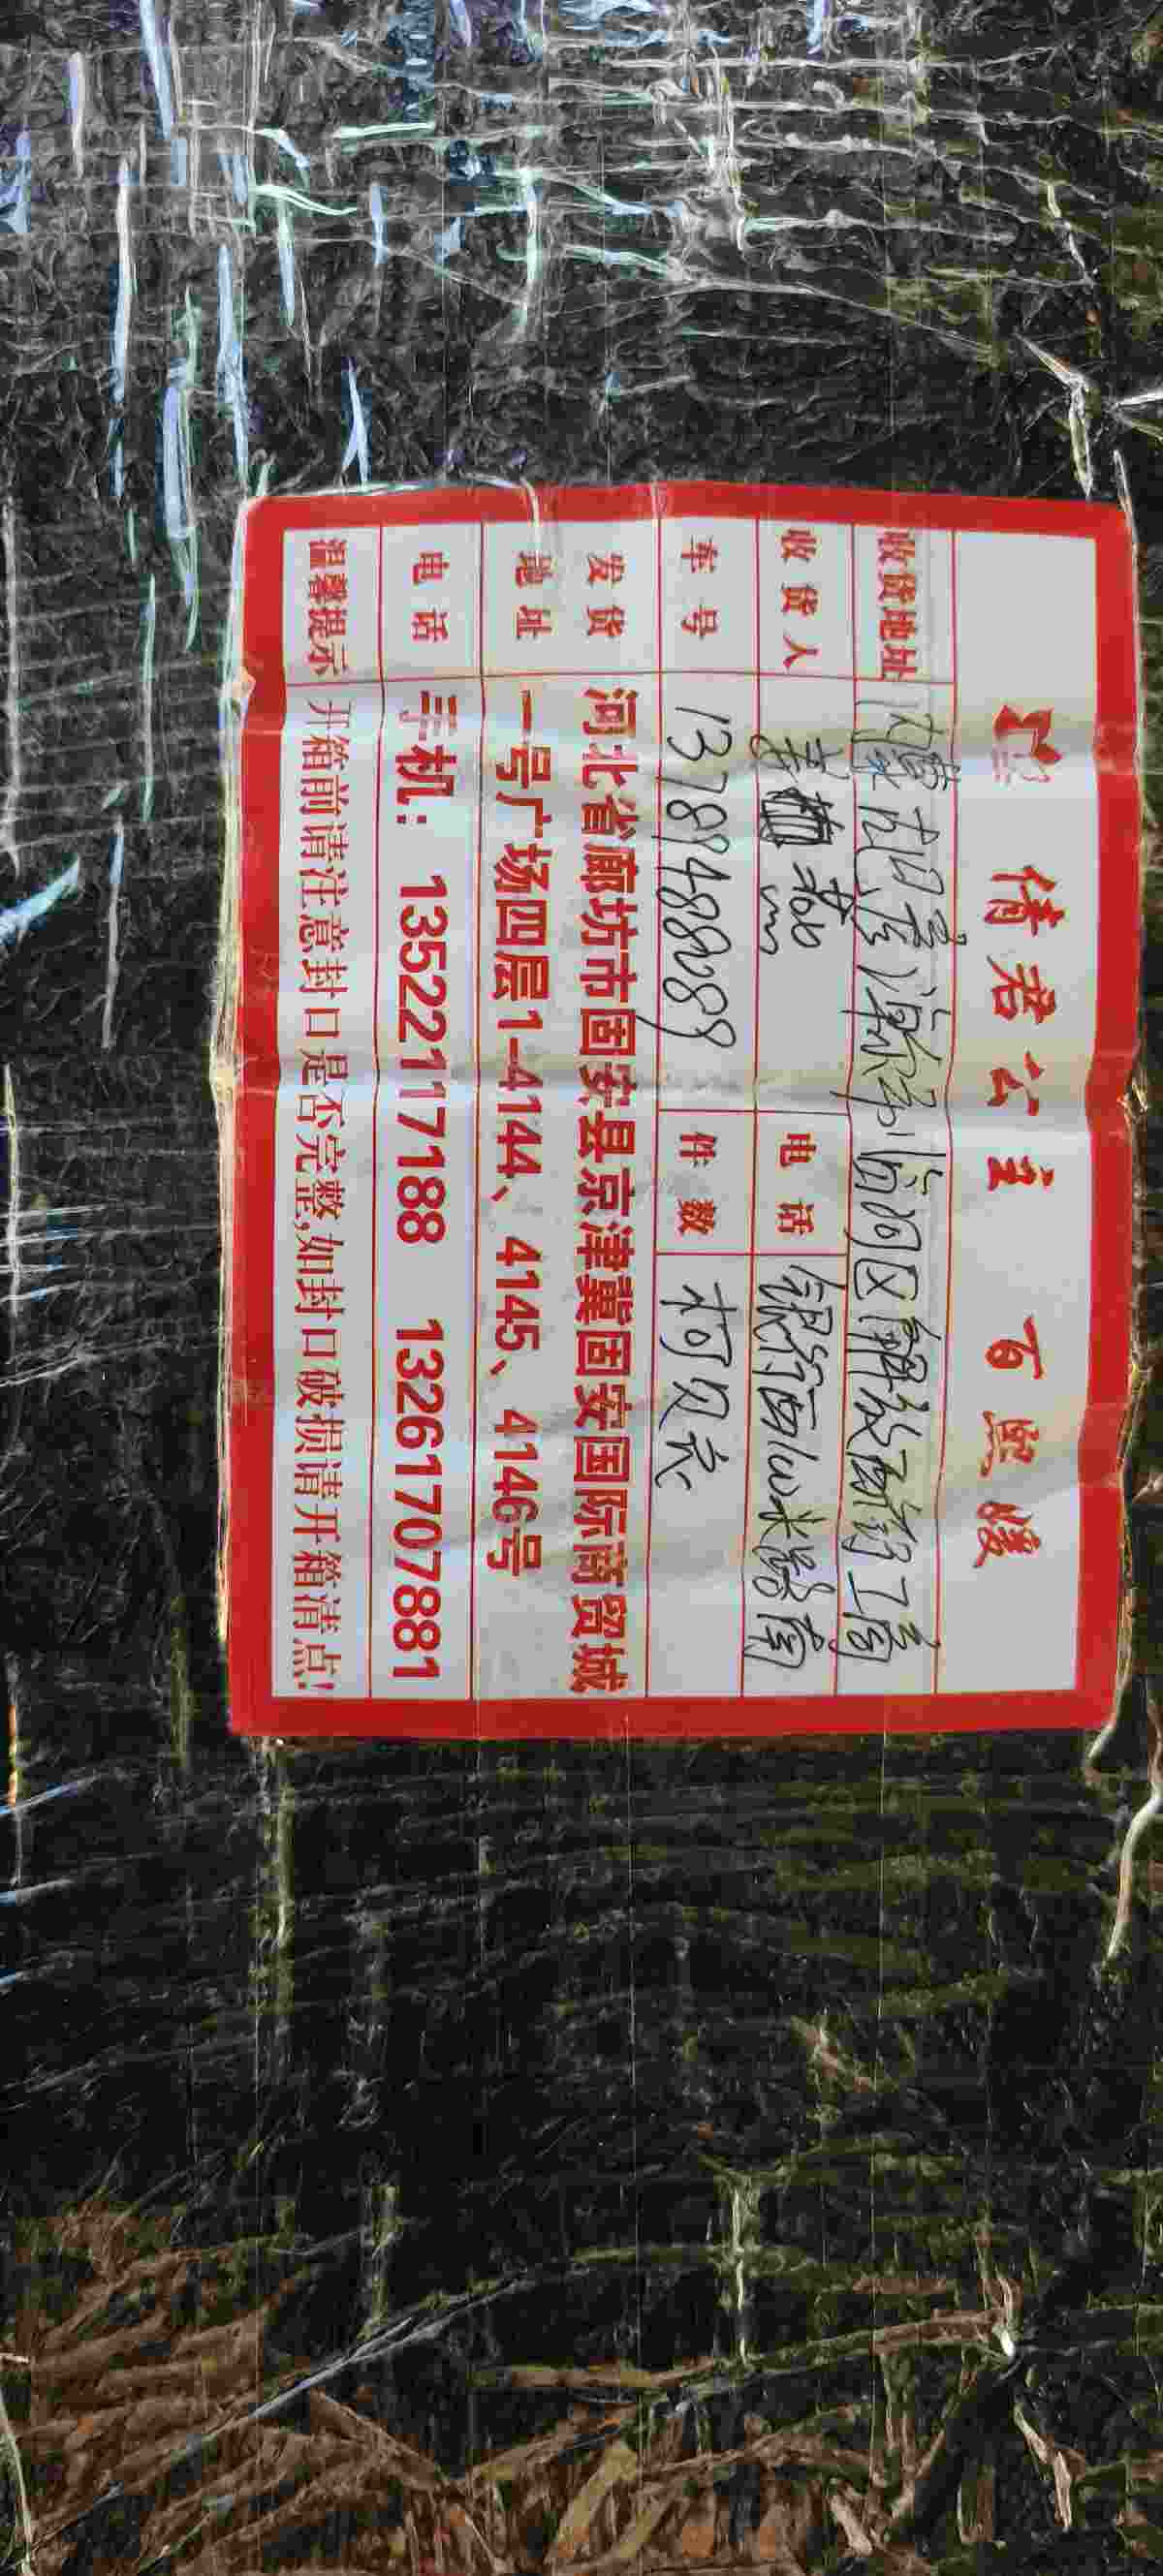 倩君公主 百熙暖
收货地址 内蒙古巴彦淖尔临河区解放西街工商
收货人 电话 银行西100米路南
车号 13789488808 件数 柯贝衣
发货地址 河北省廊坊市固安县京津冀固安国际商贸城
一号广场四层1-4144、4145、4146号
电话 手机：13522117188 13261170788 1
温馨提示 开箱前请注意封口是否完整,如封口破损请开箱清点!